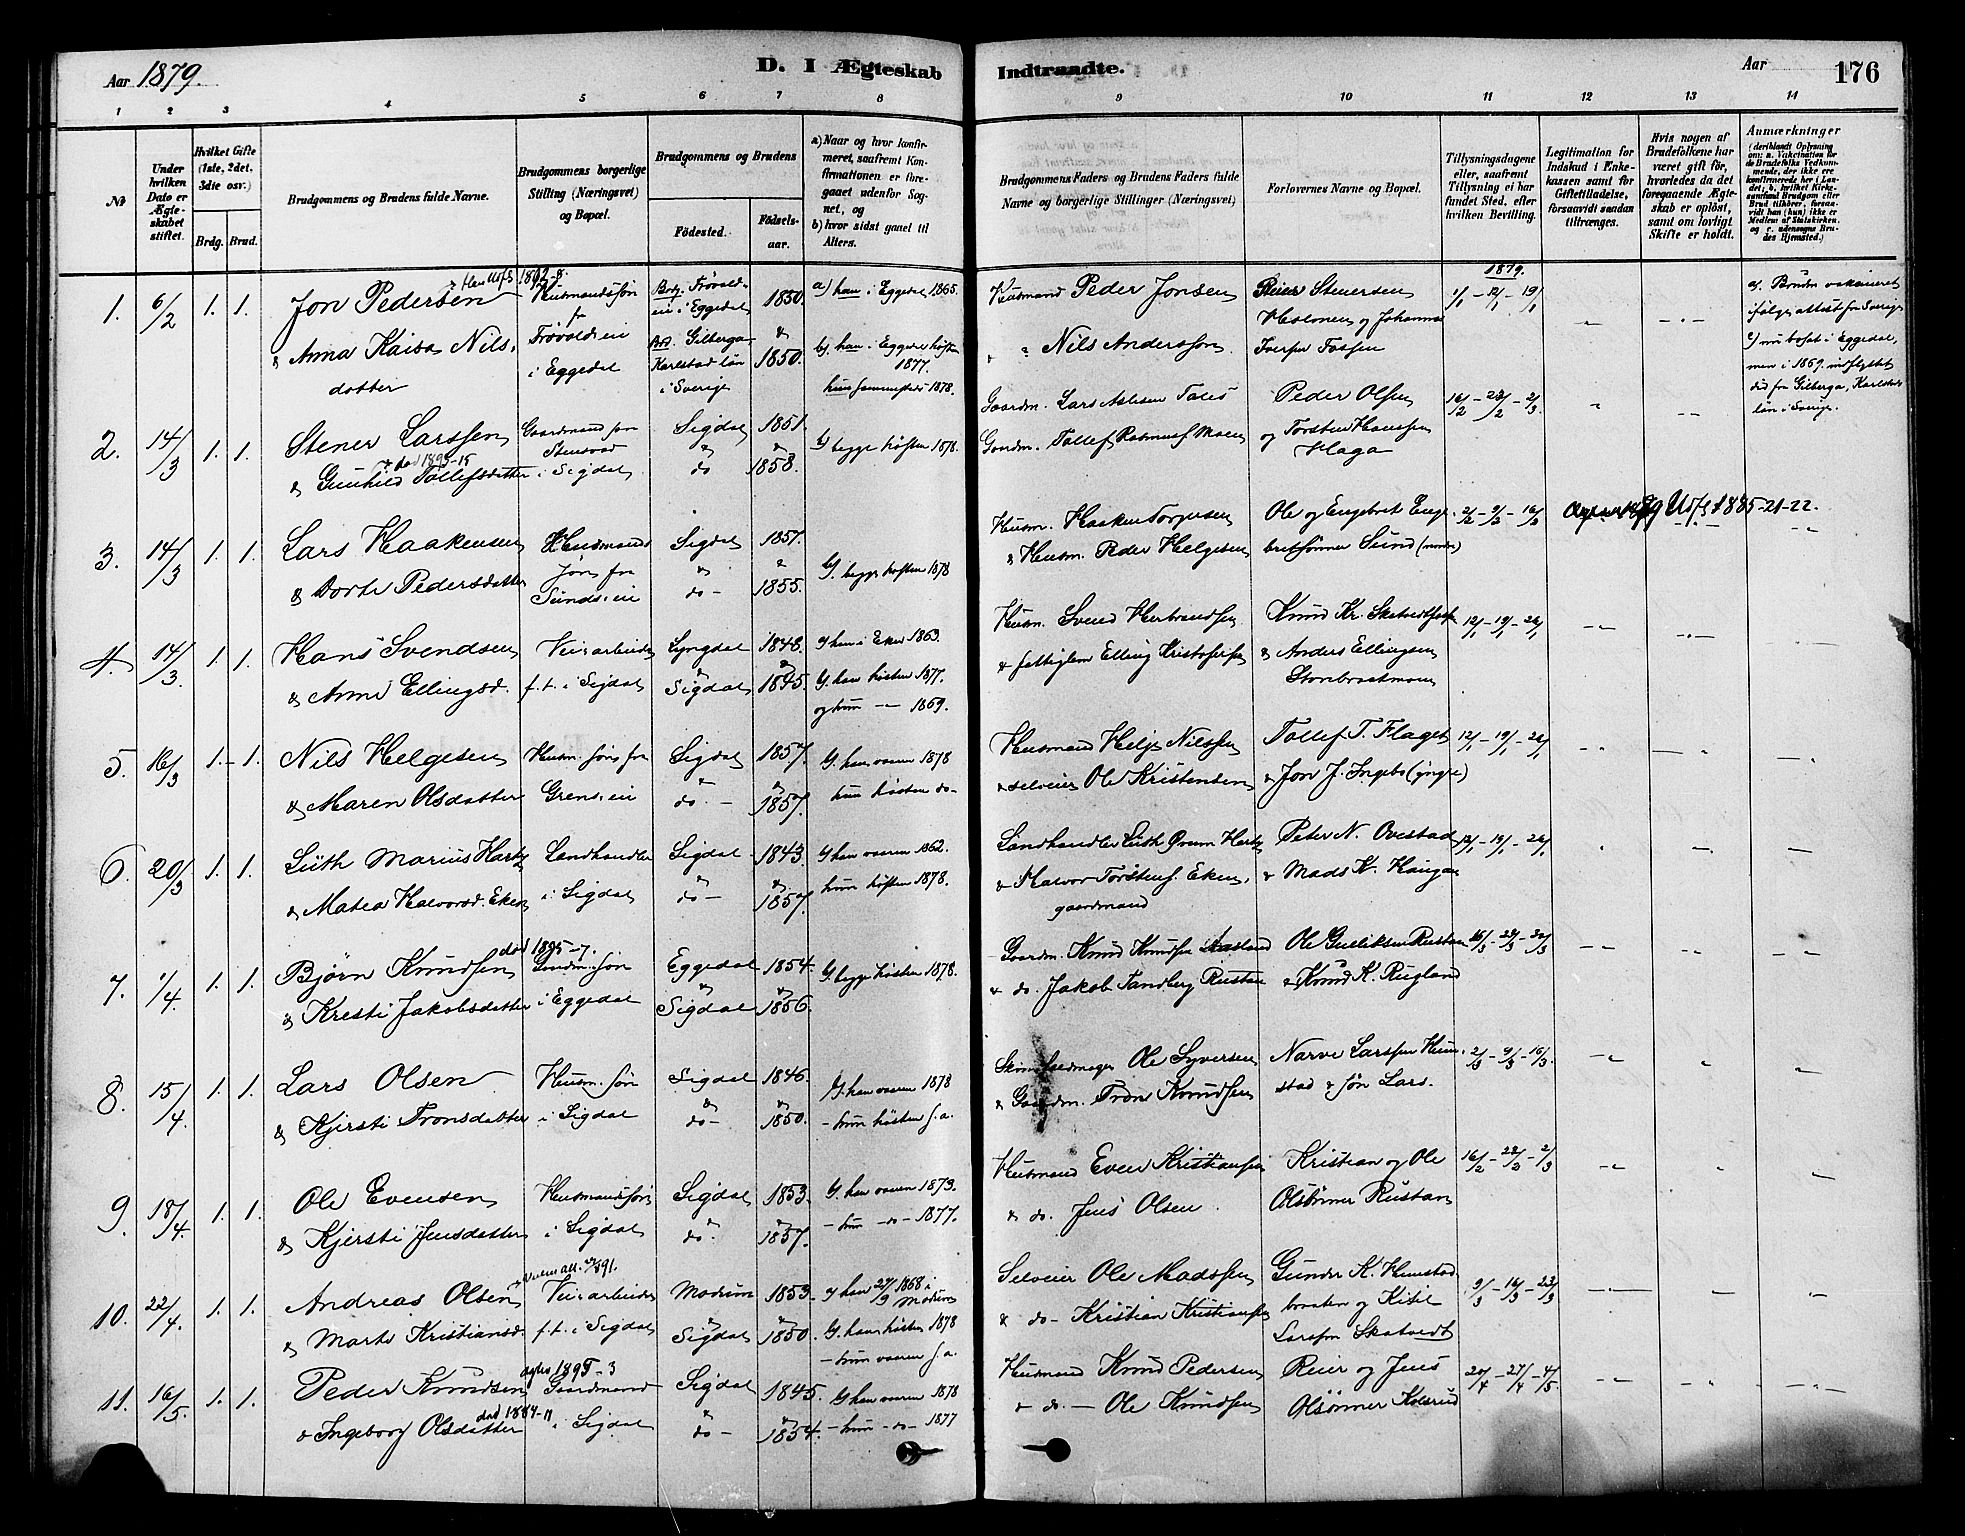 Aar 1879.
D. I Ægteskab
Indtraadte.
Aar
176
1 2 3 4 5 6 7 8
9 10 11 12 13 14
No
Under hvilken Dato er Ægteskabet stiftet.
Hvilket Gifte (1ste, 2det, 3die osv.)
Brdg. Brud.
Brudgommens og Brudens fulde Navne.
Brudgommens borgerlige Stilling (Næringsvei) og Bopæl.
Brudgommens og Brudens
Fødested.
Fødselsaar.
a) Naar og hvor konfirmeret, saafremt Konfirmationen er foregaaet udenfor Sognet, og
b) hvor sidst gaaet til Alters.
Brudgommens Faders og Brudens Faders fulde Navne og borgerlige Stillinger (Næringsvei)
Forlovernes Navne og Bopæl.
Tillysningsdagene eller, saafremt Tillysning ei har fundet Sted, efter hvilken Bevilling.
Legitimation for Indskud i Enkekassen samt for Giftetilladelse, forsaavidt saadan tiltrænges.
Hvis nogen af Brudefolkene har været gift før, hvorledes da det foregaaende Ægteskab er opløst, samt om lovligt Skifte er holdt.
Anmærkninger
(deriblandt Oplysning om: a. Vakcination for de Brudefolks Vedkommende, der ikke ere konfirmerede her i Landet, b. hvilket Kirkesamfund Brudgom eller Brud tilhører, forsaavidt han (hun) ikke er Medlem af Statskirken, og c. udensogns Brudes Hjemsted.)
1. 6/2 1. 1. Jon Pedersen Husmandssøn fra Brdg. Frøvoldeie i Eggedal 1850. a) han i Eggedal 1865. Husmand Peder Jonsen Reier Steversen 1879. 1/1 - 12/1 - 19/1
& Anna Kaisa Nilsdotter Frøvoldeie i Eggedal Brd. Gilberga Karlstad län i Sverige & 1850. b) han i Eggedal høsten 1877. hun sammesteds 1878. & Nils Andersson og Johannes Iversen
a) Bruden vakcineret ifølge attest fra Sverige
c) nu bosat i Eggedal, men i 1869 indflyttet did fra Gilberga, Karlstad län i Sverige.
2. 14/3 1. 1. Stener Larssen Gaardmand søn Sigdal 1851. b) begge høsten 1878. Gaardm. Lars Peder Olsen 16/2 - 23/2 - 2/3
& Gunhild Tollefsdatter i Sigdal do 1858. Gaardm. Tollef Moen og Torsten Hanssen Haga
3. 14/3 1. 1. Lars Haakensen Husmands Sigdal 1851. b) begge høsten 1878 Husm. Haaken Torgersen Ole og Engebret Engebretsønner Sund 2/2 - 9/2 - 16/2 1885-21-22.
& Dorte Pedersdatter søn fra Sundseie do - 1855. & Husm. Peder Helgesen
4. 14/3. 1. 1. Hans Svendsen Veiarbeider Lyngdal 1848. a) han i Eker 1863. Husm. Svend Herbrandsen Knud Kr. 12/1 - 19/1 - 26/1
& Anne Ellingsd. f. t. i Sigdal Sigdal 1845. b) han høsten 1877. og hun - 1869. & Elling Kristofersen & Anders Ellingsen
5. 16/3 1. 1. Nils Helgesen Husm. søn fra Sigdal 1857. b) han vaaren 1878 Husmand Helge Nilssen Tollef T. Flaget 12/1 - 19/1 - 26/1
& Maren Olsdatter Grenseie do. - 1857. hun høsten do - & selveier Ole Kristensen & Jon J. Ingebo (yngre)
6. 20/3 1. 1. Lüth Marius Landhandler Sigdal 1843. b) han vaaren 1862. Landhandler Lüth Peter N. Ovestad 12/1 - 19/1 - 26/1
& Matea Halvorsd. Eken i Sigdal do - 1857. hun høsten 1878. & Halvor Torstens. Eken, gaardmand & Mads K. Haugan
død 1895-7
7. 1/4 1. 1. Bjørn Knudsen Gaardm. søn Eggedal 1854. b) begge høsten 1878. Gaardm. Knud Knudsen Ole Gulliksen Rustan 16/3 - 23/3 - 30/3
& Kresti Jakobsdatter i Eggedal Sigdal 1856. & do. Jakob Tandberg Rustan & Knud K. Rugland
8. 15/4. 1. 1. Lars Olsen Husm. søn Sigdal 1846. b) han vaaren 1878 Ole Syversen Narve Larssen 2/3 - 9/3 - 16/3.
& Kjersti Tronsdatter i Sigdal do - 1850. - hun høsten s. a. & Gaardm. Tron Knudsen & søn Lars.
9. 18/4. 1. 1. Ole Evensen Husmandssøn Sigdal 1853. b) han vaaren 1873. Husmand Even Kristiansen Kristian og Ole 16/2 - 23/2 - 2/3
& Kjersti Jensdatter i Sigdal do. 1857. - hun - do - 1877. & do. Jens Olsen. Olsønner Rustan
10. 22/4. 1. 1. Andreas Olsen Veiarbeider Modum 1853. a) han 27/9 1868 i Modum Selveier Ole Madssen Gunder K. 9/3 - 16/3 - 23/3
& Marte Kristiansd. f. t. i Sigdal Sigdal 1850. b) han høsten 1878 - hun vaaren s. a. & do - Kristian Kristiansen og Kittil Larssen Skatvedt
11. 16/5. 1. 1. Peder Knudsen Gaardmand Sigdal 1845. b) han vaaren 1878 Husmand Knud Pedersen Reier og Jens 20/4 - 27/4 - 4/5
død 1884-11
& Ingeborg Olsdatter i Sigdal do - 1854. - hun - do - 1877 & do. - Ole Knudsen Olsønner Kolsrud